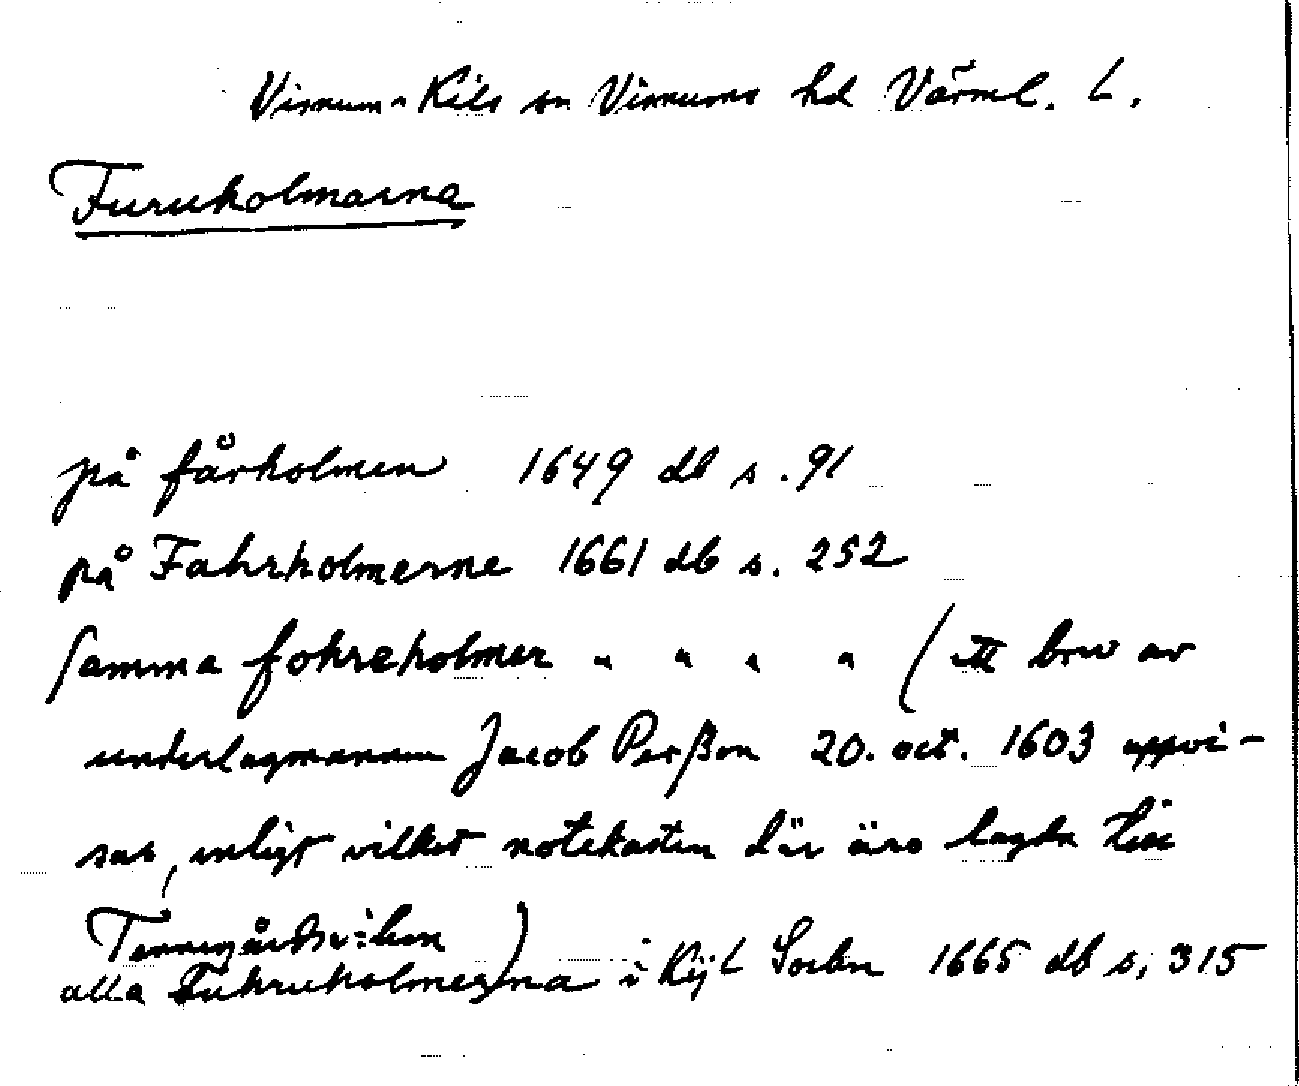 Visnum-Kils sn Visnums hd Värml. L.
Furuholmarna
på fårholmen 1649 db s. 91
på Fahrholmerne 1661 db s. 252
samma fohreholmer " " " " (ett brev av
underlagmannen Jacob Perßon 20. oct. 1603 uppvi-
sas, enligt vilket notekasten där äro lagda till
Tennegårdsviken)
alla Fuhruholmerna i Kijl Sochn 1665 db s. 315